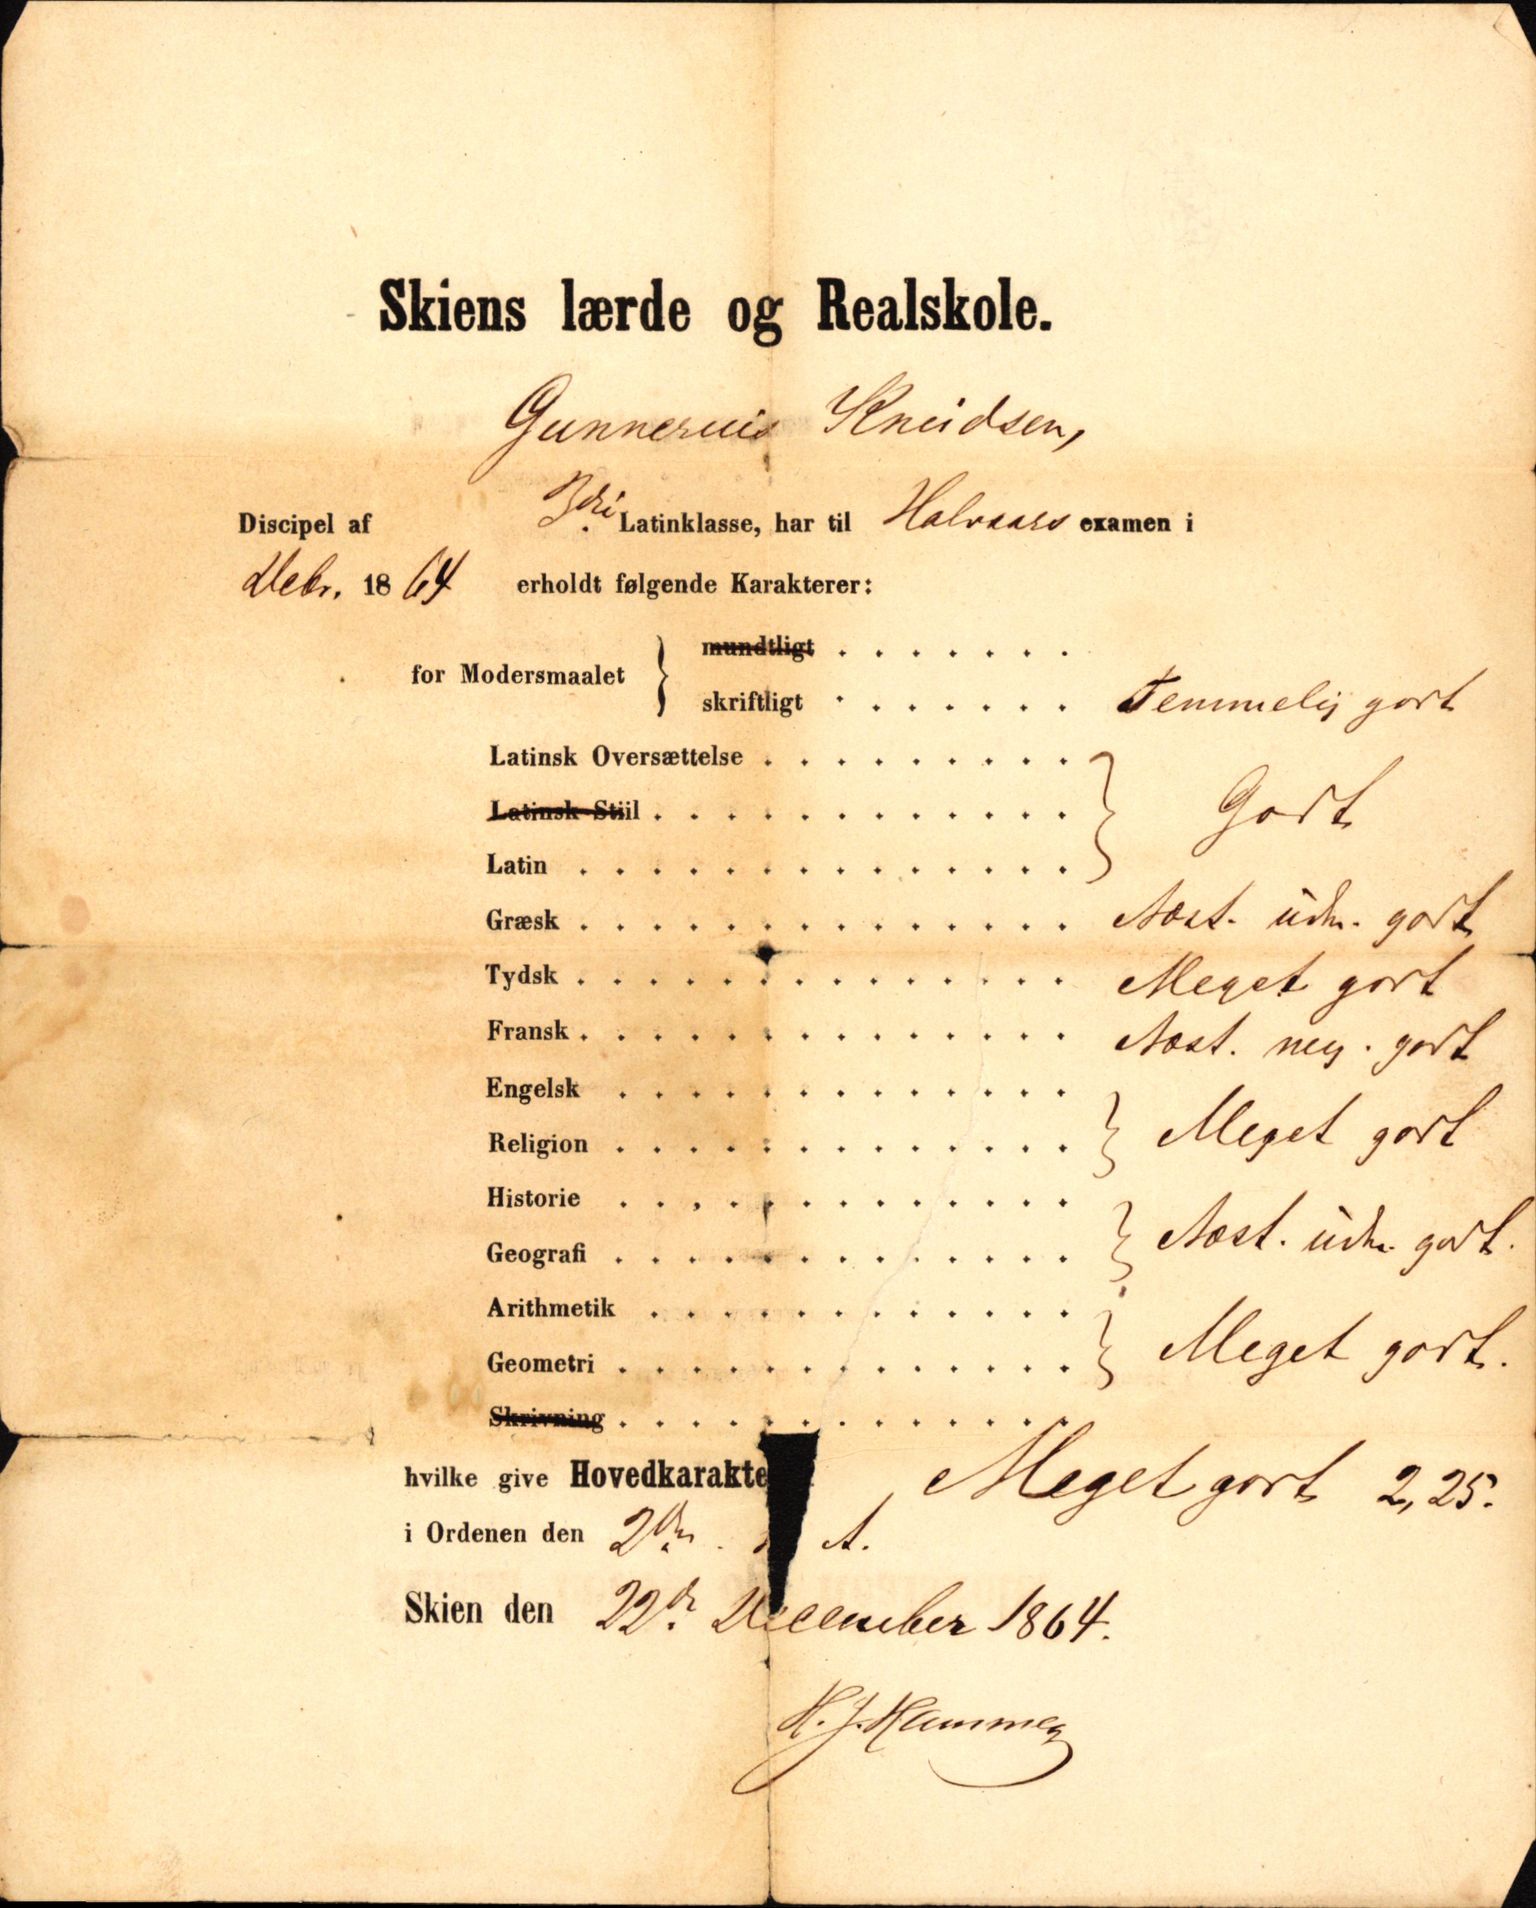 Skiens lærde og Realskole.
Gunnerius Knudsen,
Discipel af 3die Latinklasse, har til Halvaars examen i
Decbr. 1864 erholdt følgende Karakterer:
for Modersmaalet } mundtligt . . . . . . .
skriftligt . . . . . . . Temmelig godt
Latinsk Oversættelse . . . . . . . . .
Latinsk Stiil . . . . . . . . . . . . } Godt
Latin . . . . . . . . . . . . . .
Græsk . . . . . . . . . . . . . . Næst. udm. godt
Tydsk . . . . . . . . . . . . . . Meget godt
Fransk . . . . . . . . . . . . . . Næst. meg. godt
Engelsk . . . . . . . . . . . . .
Religion . . . . . . . . . . . . . } Meget godt
Historie . . . . . . . . . . . . .
Geografi . . . . . . . . . . . . . } Næst. udm. godt.
Arithmetik . . . . . . . . . . . .
Geometri . . . . . . . . . . . . . } Meget godt.
Skrivning . . . . . . . . . . . . .
hvilke give Hovedkarakte Meget godt 2,25.
i Ordenen den 2den. A.
Skien den 22de December 1864.
H. J. Hammer